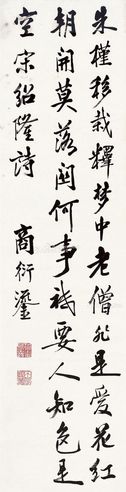 朱槿移栽釋梦中老僧非是爱花红
朝開莫落関何事祇要人知色是
空宋紹隆詩
商衍鎏